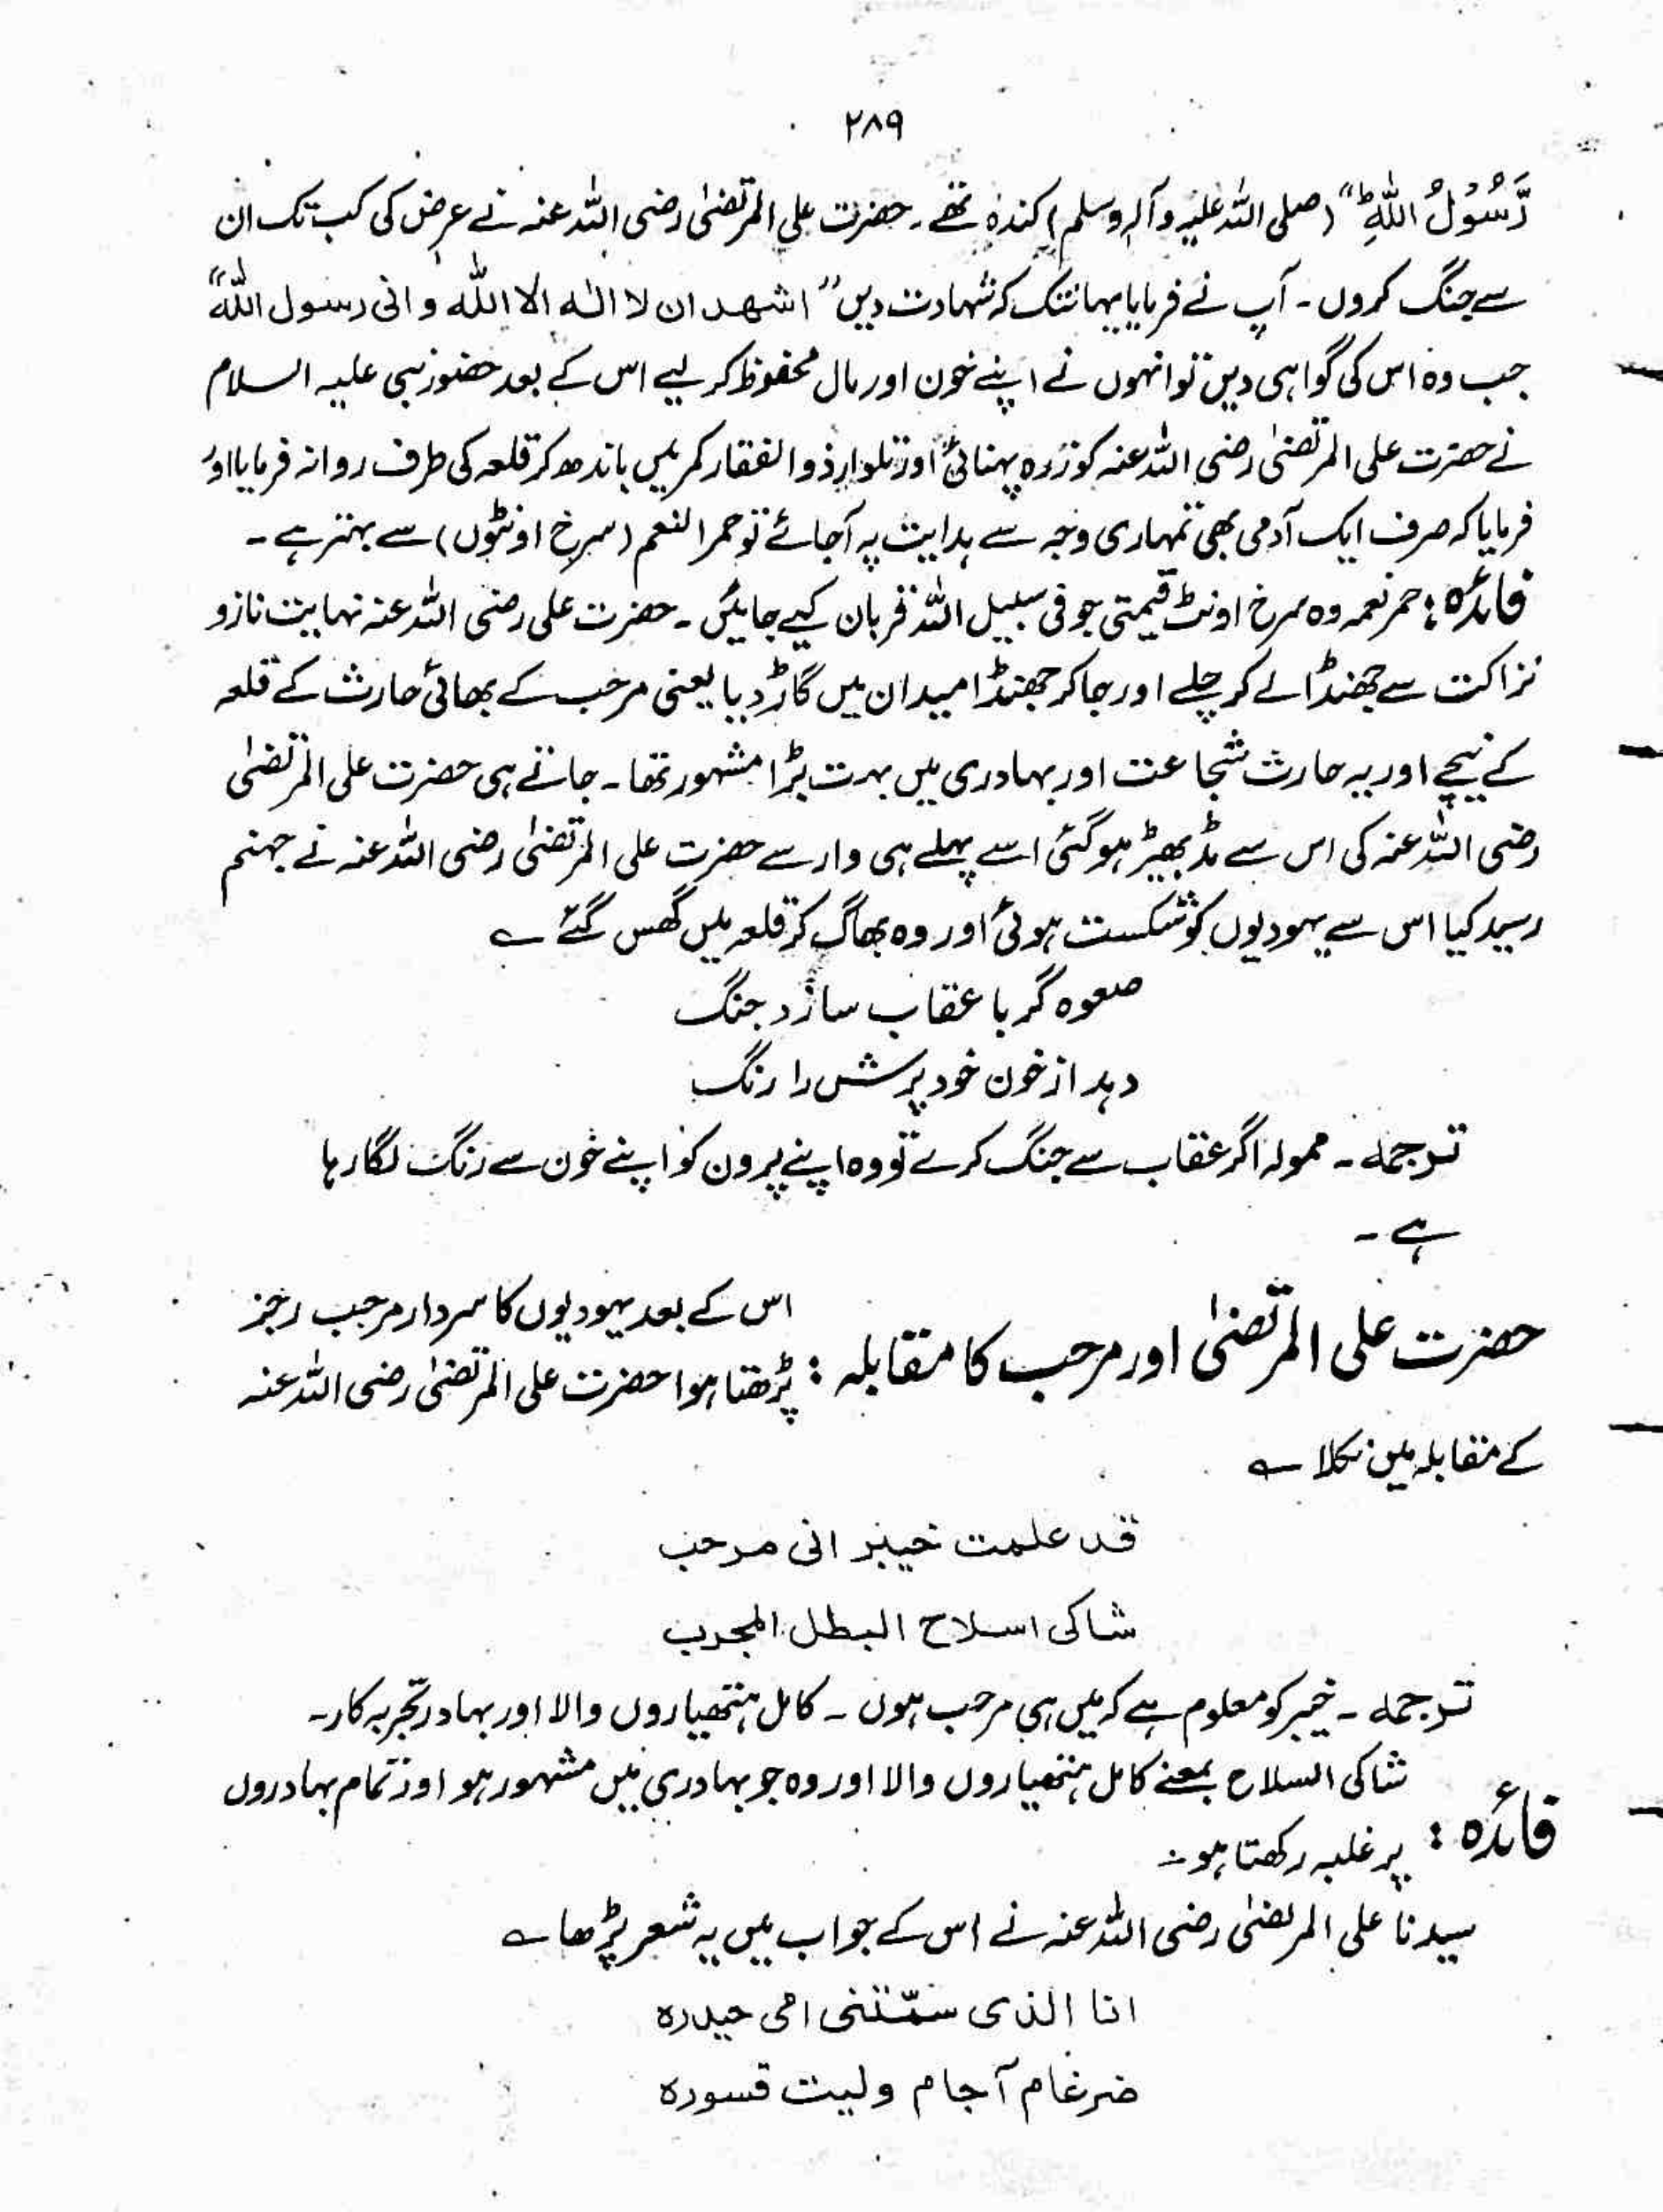 ۲۸۹
رَّسُوْلُ اللّٰهِ" (صلی اللہ علیہ وآلہ وسلم) کندہ تھے۔ حضرت علی المرتضیٰ رضی اللہ عنہ نے عرض کی کب تک ان
سے جنگ کروں۔ آپ نے فرمایا یہانتک کہ شہادت دیں "اشهد ان لا الٰه الا اللّٰه و انی رسول اللّٰه"
جب وہ اس کی گواہی دیں تو انہوں نے اپنے خون اور مال محفوظ کر لیے اس کے بعد حضور نبی علیہ السلام
نے حضرت علی المرتضیٰ رضی اللہ عنہ کو زرہ پہنائی اور تلوار ذوالفقار کمر میں باندھ کر قلعہ کی طرف روانہ فرمایا اور
فرمایا کہ صرف ایک آدمی بھی تمہاری وجہ سے ہدایت پہ آجائے تو حمر النعم (سرخ اونٹوں) سے بہتر ہے۔
فائدہ: حمر نعمہ وہ سرخ اونٹ قیمتی جو فی سبیل اللہ قربان کیے جائیں۔ حضرت علی رضی اللہ عنہ نہایت ناز و
نزاکت سے جھنڈا لے کر چلے اور جا کر جھنڈا میدان میں گاڑ دیا یعنی مرحب کے بھائی حارث کے قلعہ
کے نیچے اور یہ حارث شجاعت اور بہادری میں بہت بڑا مشہور تھا۔ جاتے ہی حضرت علی المرتضیٰ
رضی اللہ عنہ کی اس سے مڈبھیڑ ہوگئی اسے پہلے ہی وار سے حضرت علی المرتضیٰ رضی اللہ عنہ نے جہنم
رسید کیا اس سے یہودیوں کو شکست ہوئی اور وہ بھاگ کر قلعہ میں گھس گئے ؎
صعوہ گر با عقاب سازد جنگ
دہد از خون خود پرش را رنگ
ترجمہ۔ ممولہ اگر عقاب سے جنگ کرے تو وہ اپنے پرون کو اپنے خون سے رنگ لگا رہا
ہے۔
حضرت علی المرتضیٰ اور مرحب کا مقابلہ: اس کے بعد یہودیوں کا سردار مرحب رجز
پڑھتا ہوا حضرت علی المرتضیٰ رضی اللہ عنہ
کے مقابلہ میں نکلا ؎
قد علمت خیبر انی مرحب
شاکی اسلاح البطل المجرب
ترجمہ۔ خیبر کو معلوم ہے کہ میں ہی مرحب ہوں۔ کامل ہتھیاروں والا اور بہادر تجربہ کار۔
فائدہ: شاکی السلاح بمعنے کامل ہتھیاروں والا اور وہ جو بہادری میں مشہور ہو اور تمام بہادروں
پر غلبہ رکھتا ہو۔
سیدنا علی المرتضیٰ رضی اللہ عنہ نے اس کے جواب میں یہ شعر پڑھا ؎
انا الذی سمّتنی امی حیدرہ
ضرغام آجام ولیت قسورہ